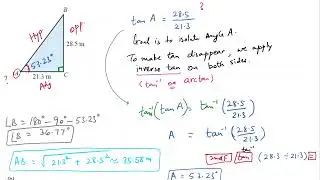 B
Hyp
opp
28.5 m
53.23°
?
A
21.3 m
C
Adj
?
tan A = 28.5 / 21.3
Goal is to isolate Angle A.
To make tan disappear, we apply
inverse tan on both sides.
(tan⁻¹ or arctan)
tan⁻¹(tan A) = tan⁻¹(28.5 / 21.3)
A = tan⁻¹(28.5 / 21.3)
2nd tan⁻¹ tan (28.5 ÷ 21.3) =
A = 53.23°
∠B = 180° - 90° - 53.23°
∠B = 36.77°
AB = √21.3² + 28.5² ≈ 35.58 m